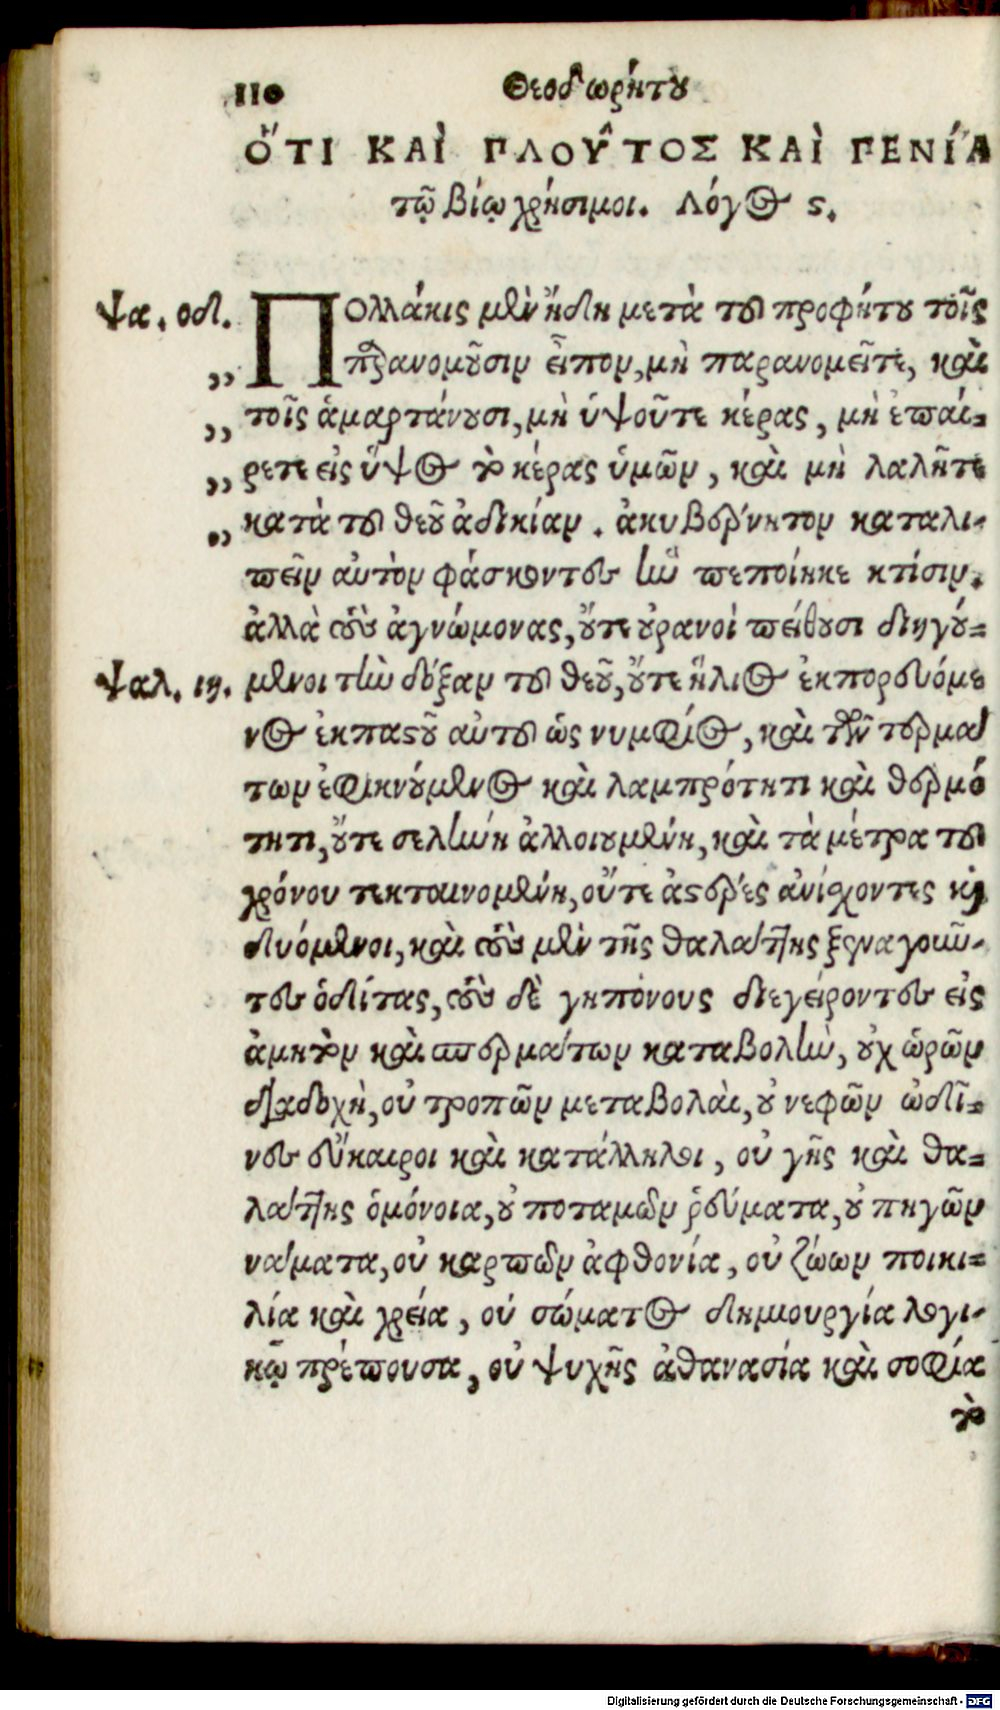 110 Θεοδωρήτου
ὍΤΙ ΚΑῚ ΠΛΟΥ͂ΤΟΣ ΚΑῚ ΠΕΝΊΑ
τῷ βίῳ χρήσιμοι. Λόγος ς.
Ψα. οδ. ΠΟλλάκις μὲν ἤδη μετὰ τοῦ προφήτου τοῖς
,, παρανομοῦσιν εἶπον, μὴ παρανομεῖτε, καὶ
,, τοῖς ἁμαρτάνουσι, μὴ ὑψοῦτε κέρας, μὴ ἐπαί-
,, ρετε εἰς ὕψος τὸ κέρας ὑμῶν, καὶ μὴ λαλῆτε
,, κατὰ τοῦ θεοῦ ἀδικίαν. ἀκυβέρνητον καταλι-
πεῖν αὐτὸν φάσκοντες ἣν πεποίηκε κτίσιν.
ἀλλὰ τοὺς ἀγνώμονας, οὔτε οὐρανοὶ πείθουσι διηγού-
Ψαλ. ιη. μενοι τὴν δόξαν τοῦ θεοῦ, οὔτε ἥλιος ἐκπορευόμε
νος ἐκ παστοῦ αὐτοῦ ὡς νυμφίος, καὶ τῶν τερμά
των ἐφικνούμενος καὶ λαμπρότητι καὶ θερμό
τητι, οὔτε σελήνη ἀλλοιουμένη, καὶ τὰ μέτρα τοῦ
χρόνου τεκταινομένη, οὔτε ἀστέρες ἀνίσχοντες καὶ
δυόμενοι, καὶ τοὺς μὲν τῆς θαλάττης ξεναγοῦν-
τες ὁδίτας, τοὺς δὲ γηπόνους διεγείροντες εἰς
ἀμητὸν καὶ σπερμάτων καταβολὴν, οὐχ ὡρῶν
διαδοχὴ, οὐ τροπῶν μεταβολαὶ, οὐ νεφῶν ὠδῖ-
νες εὔκαιροι καὶ κατάλληλοι, οὐ γῆς καὶ θα-
λάττης ὁμόνοια, οὐ ποταμῶν ῥεύματα, οὐ πηγῶν
νάματα, οὐ καρπῶν ἀφθονία, οὐ ζώων ποικι-
λία καὶ χρεία, οὐ σώματος δημιουργία λογι-
κῷ πρέπουσα, οὐ ψυχῆς ἀθανασία καὶ σοφία
τὸ
Digitalisierung gefördert durch die Deutsche Forschungsgemeinschaft - DFG